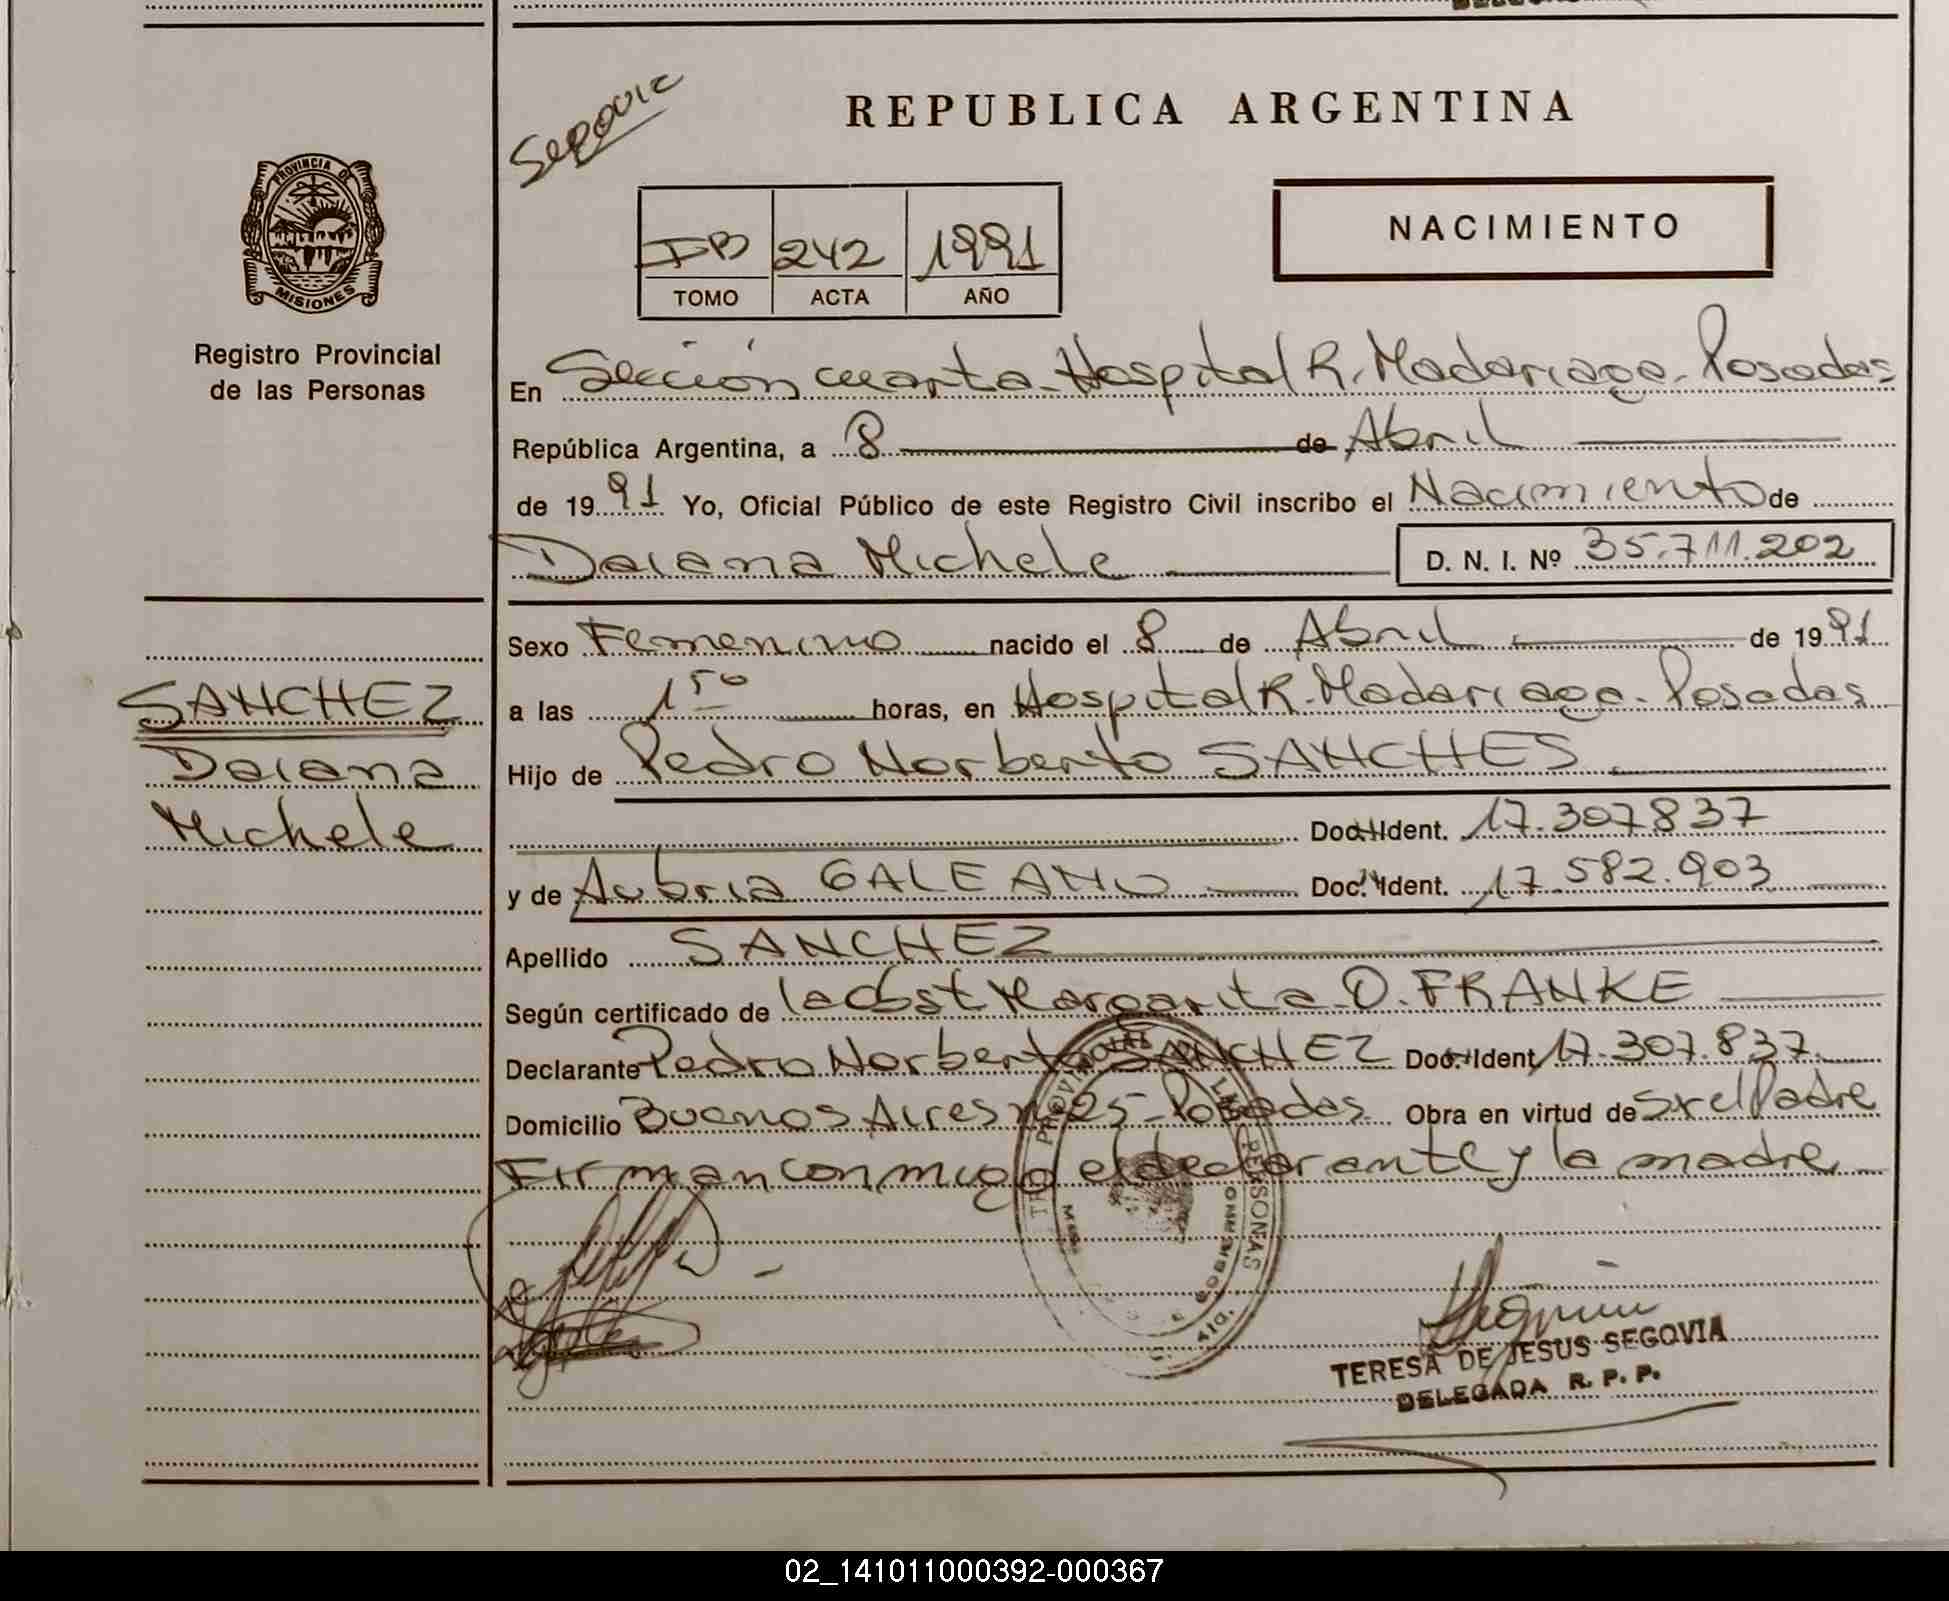 REPUBLICA ARGENTINA
Segovia
PROVINCIA DE
MISIONES
Registro Provincial
de las Personas
242 1991
TOMO ACTA AÑO
NACIMIENTO
En Sección cuarta - Hospital R. Madariaga - Posadas
República Argentina, a 8 de Abril
de 1991 Yo, Oficial Público de este Registro Civil inscribo el Nacimiento de
Daiana Michele D. N. I. Nº 35.711.202
Sexo Femenino nacido el 8 de Abril de 1991
SANCHEZ
Daiana
Michele
a las 1 50 horas, en Hospital R. Madariaga - Posadas
Hijo de Pedro Norberto SANCHES
Doc. Ident. 17.307837
y de Aubria GALEANO Doc. Ident. 17.582.903
Apellido SANCHEZ
Según certificado de la Obst Margarita O. FRANKE
Declarante Pedro Norberto SANCHEZ Doc. Ident. 17.307.837
Domicilio Buenos Aires nº 25 - Posadas Obra en virtud de Sr el Padre
Firman conmigo el declarante y la madre
TERESA DE JESUS SEGOVIA
DELEGADA R. P. P.
02_141011000392-000367